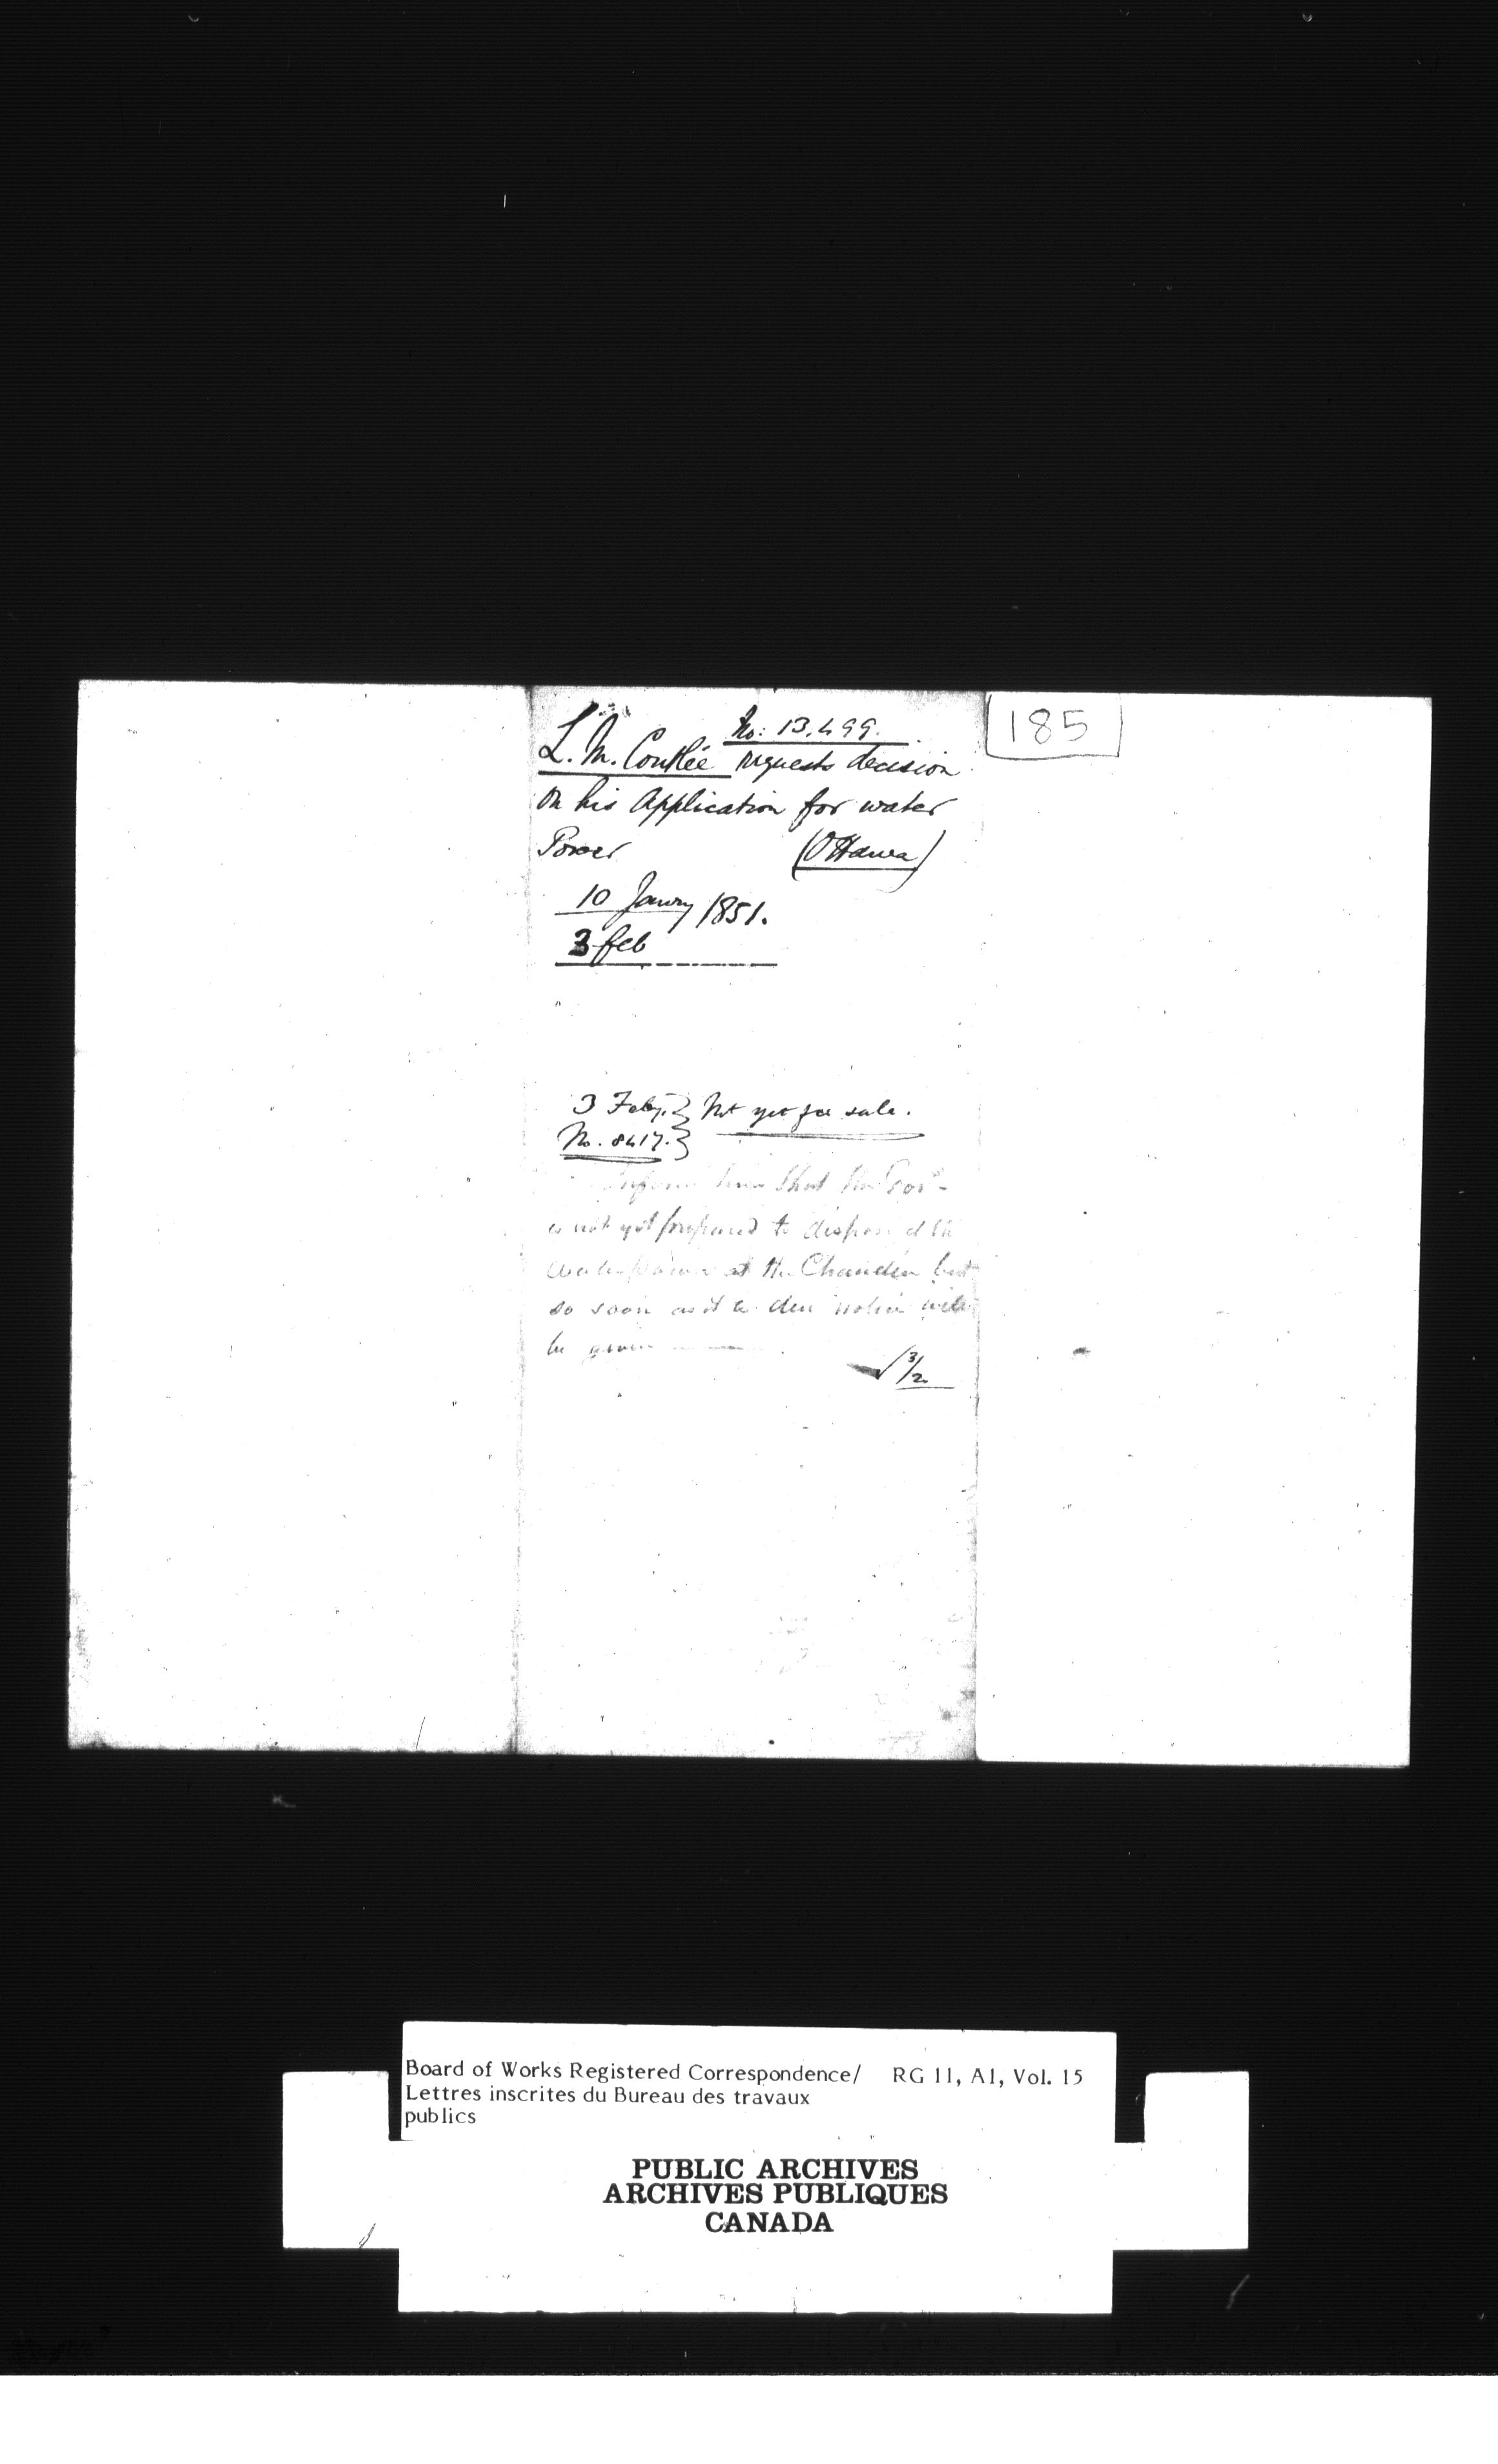 185
No: 13,499.
L. M. Coutlée requests decision
on his Application for water
Power (Ottawa)
10 Janry 1851.
3 feb
3 Feby. } Not yet for sale.
No. 8417. }
Inform him that the Govt
is not yet prepared to dispose of the
Water power at the Chaudière but
so soon as it is due notice will
be given
3/2
Board of Works Registered Correspondence/ RG 11, A1, Vol. 15
Lettres inscrites du Bureau des travaux
publics
PUBLIC ARCHIVES
ARCHIVES PUBLIQUES
CANADA